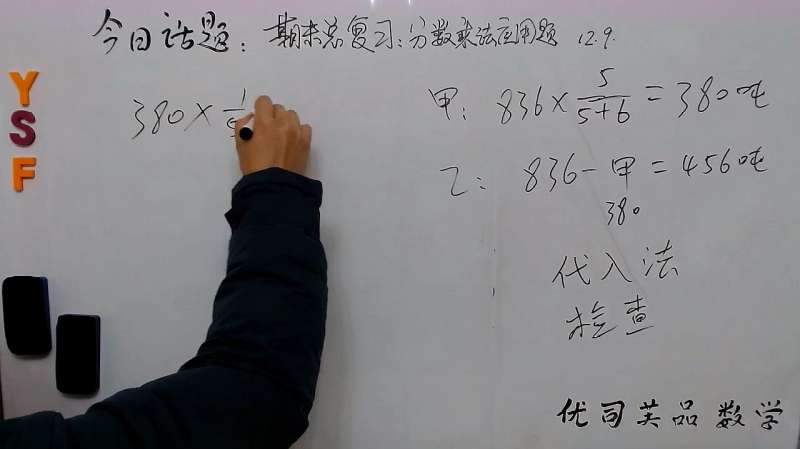 今日话题：期末总复习：分数乘法应用题 12.9.
YSF
380×1/5
甲：836×5/(5+6)=380吨
乙：836-甲=456吨
380
代入法
检查
优司英品数学